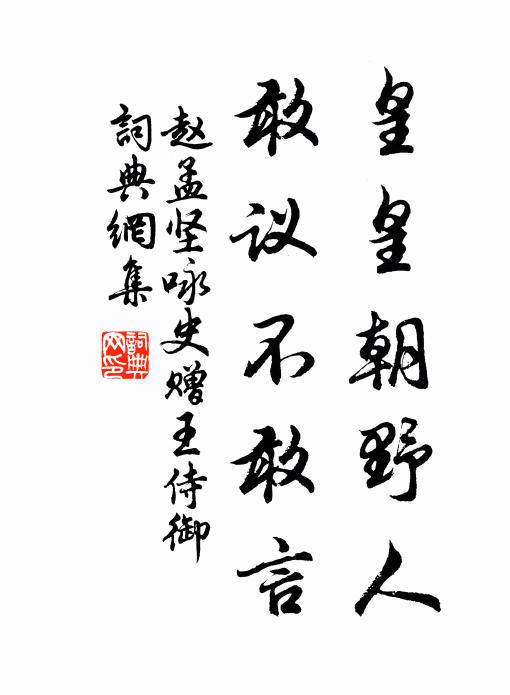 皇皇朝野人
敢议不敢言
赵孟坚咏史赠王侍御
詞典網集
詞典
网印